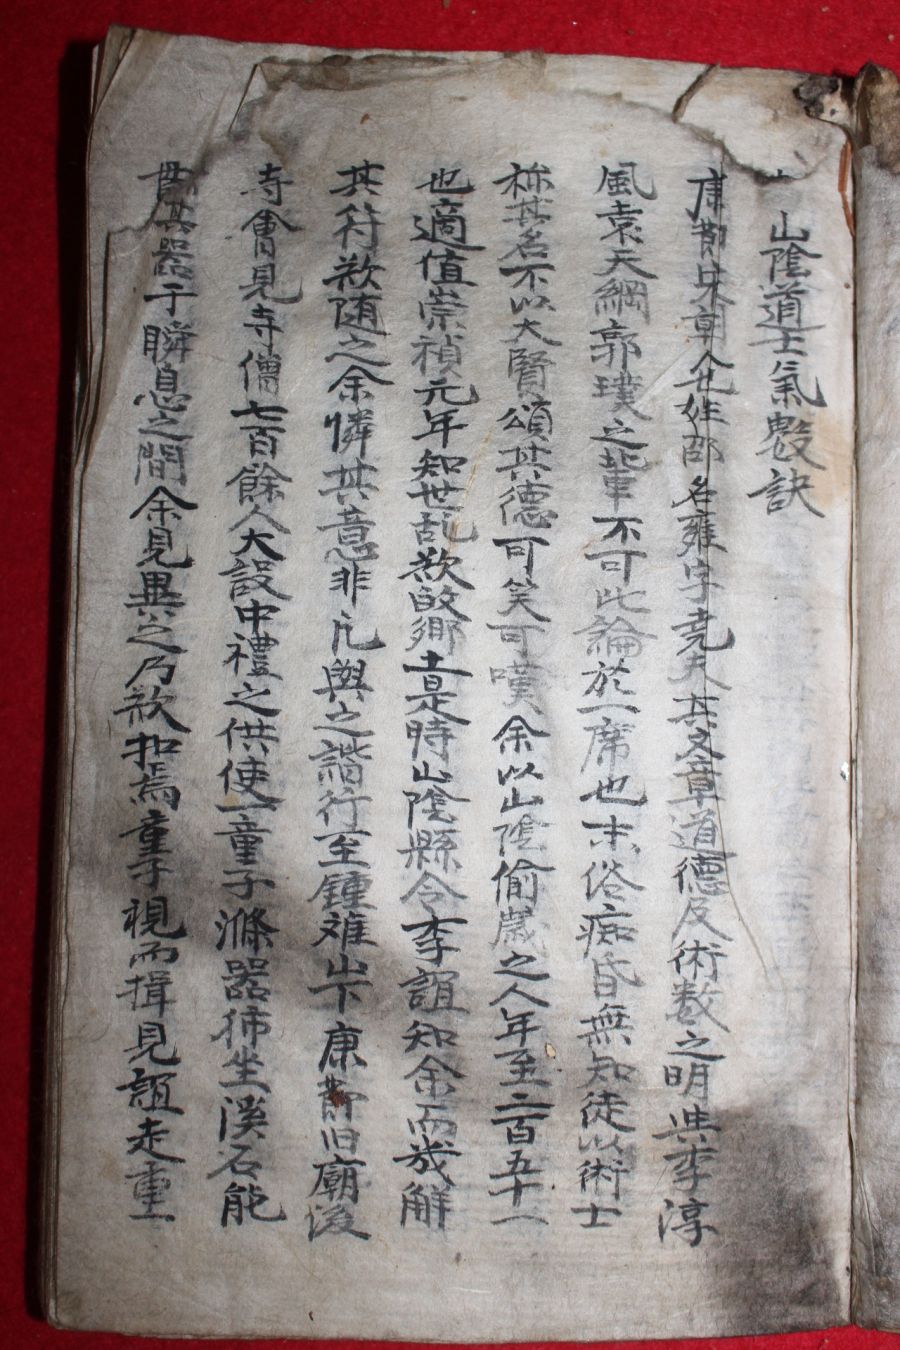 山陰道士氣數訣
康節宋朝人也姓邵名雍字堯夫其文章道德及術数之明與李淳
風袁天綱郭璞之輩不可比論於一席也末俗痴昏無知徒以術士
称其名不以大賢頌其德可笑可嘆余以山陰偷歲之人年至二百五十一
也適值崇禎元年知世乱欲故鄉土是時山陰縣令李誼知余而幾解
其符欲随之余憐其意非凡與之諧行至鍾难山下康節旧廟後
寺會見寺僧七百餘人大設中禮之供使一童子滌器彿坐溪石能
其器于瞬息之間余見異之乃欲扣焉童子視而揖見誼走重